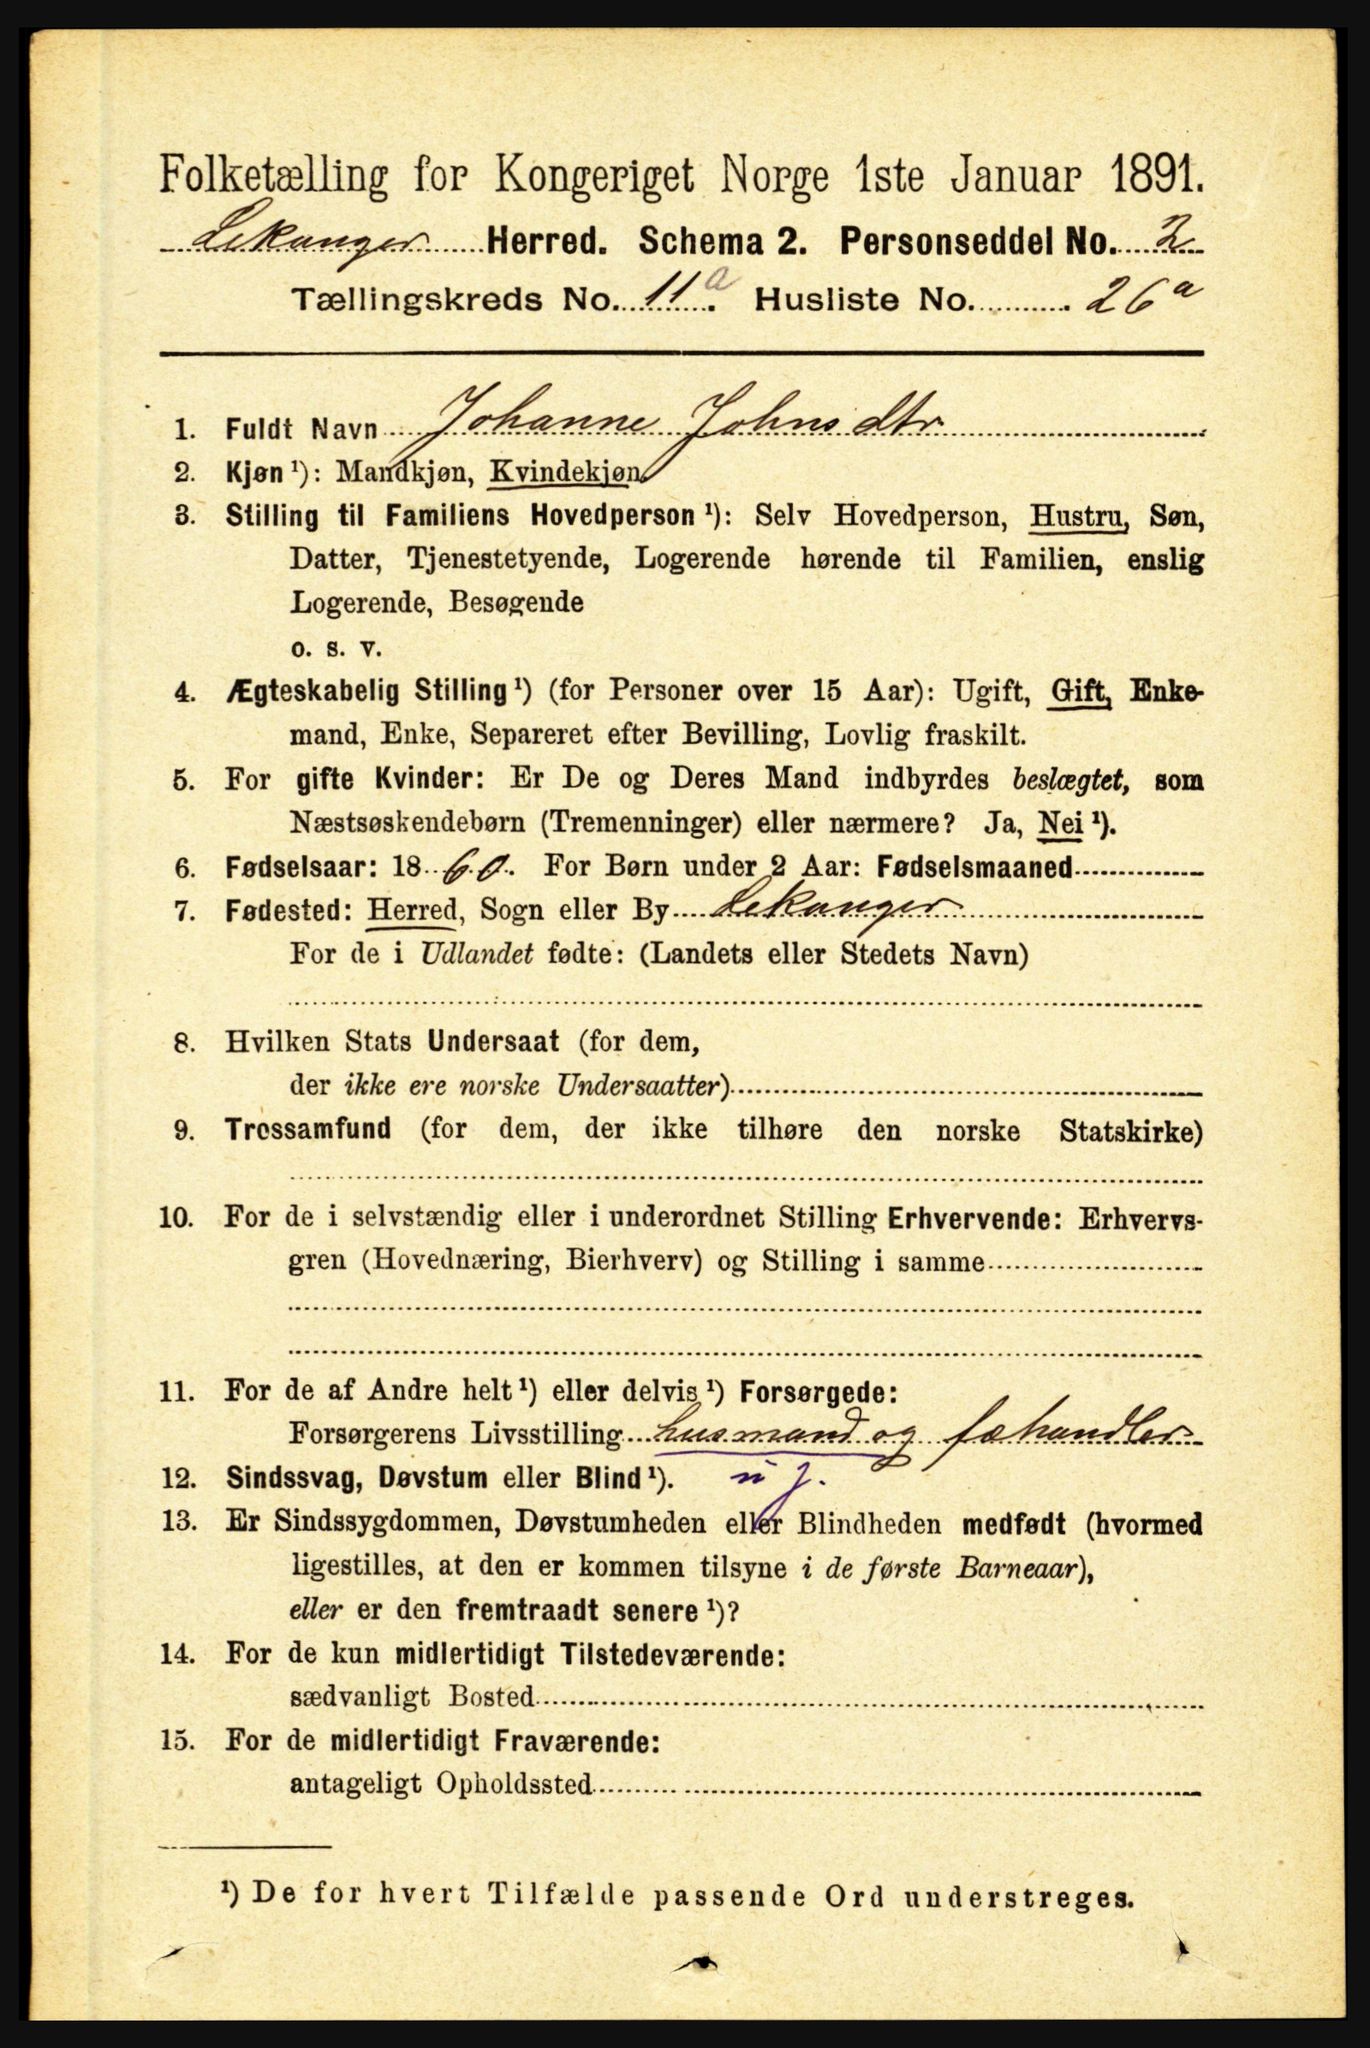 Folketælling for Kongeriget Norge 1ste Januar 1891.
Lekanger Herred. Schema 2. Personseddel No. 2
Tællingskreds No. 11a. Husliste No. 26a
1. Fuldt Navn Johanne Johnsdtr
2. Kjøn ¹): Mandkjøn, Kvindekjøn
3. Stilling til Familiens Hovedperson ¹): Selv Hovedperson, Hustru, Søn,
Datter, Tjenestetyende, Logerende hørende til Familien, enslig
Logerende, Besøgende
o. s. v.
4. Ægteskabelig Stilling ¹) (for Personer over 15 Aar): Ugift, Gift, Enke-
mand, Enke, Separeret efter Bevilling, Lovlig fraskilt.
5. For gifte Kvinder: Er De og Deres Mand indbyrdes beslægtet, som
Næstsøskendebørn (Tremenninger) eller nærmere? Ja, Nei ¹).
6. Fødselsaar: 1860. For Børn under 2 Aar: Fødselsmaaned
7. Fødested: Herred, Sogn eller By Lekanger
For de i Udlandet fødte: (Landets eller Stedets Navn)
8. Hvilken Stats Undersaat (for dem,
der ikke ere norske Undersaatter)
9. Trossamfund (for dem, der ikke tilhøre den norske Statskirke)
10. For de i selvstændig eller i underordnet Stilling Erhvervende: Erhvervs-
gren (Hovednæring, Bierhverv) og Stilling i samme
11. For de af Andre helt ¹) eller delvis ¹) Forsørgede:
Forsørgerens Livsstilling husmand og fæhandler
12. Sindssvag, Døvstum eller Blind ¹).
13. Er Sindssygdommen, Døvstumheden eller Blindheden medfødt (hvormed
ligestilles, at den er kommen tilsyne i de første Barneaar),
eller er den fremtraadt senere ¹)?
14. For de kun midlertidigt Tilstedeværende:
sædvanligt Bosted
15. For de midlertidigt Fraværende:
antageligt Opholdssted
¹) De for hvert Tilfælde passende Ord understreges.